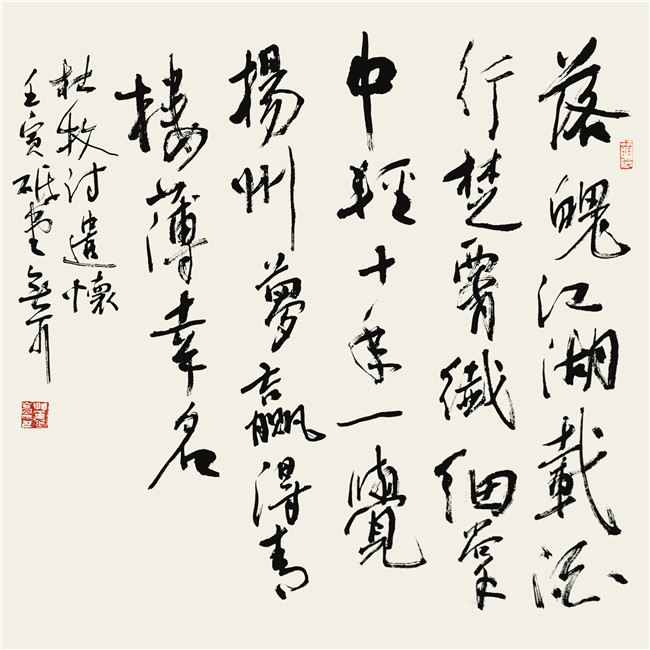 落魄江湖載酒
行楚腰纖細掌
中輕十年一覺
揚州夢贏得青
樓薄幸名
杜牧詩遣懷
壬寅